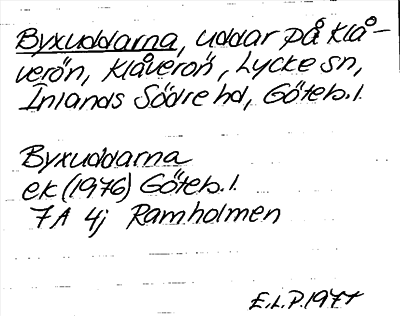 Byxuddarna, uddar på Klå-
verön, Klåverön, Lycke sn,
Inlands Södre hd, Göteb.l.
Byxuddarna
ek (1976) Göteb.l.
7A 4j Ramholmen
E.L.P. 1977